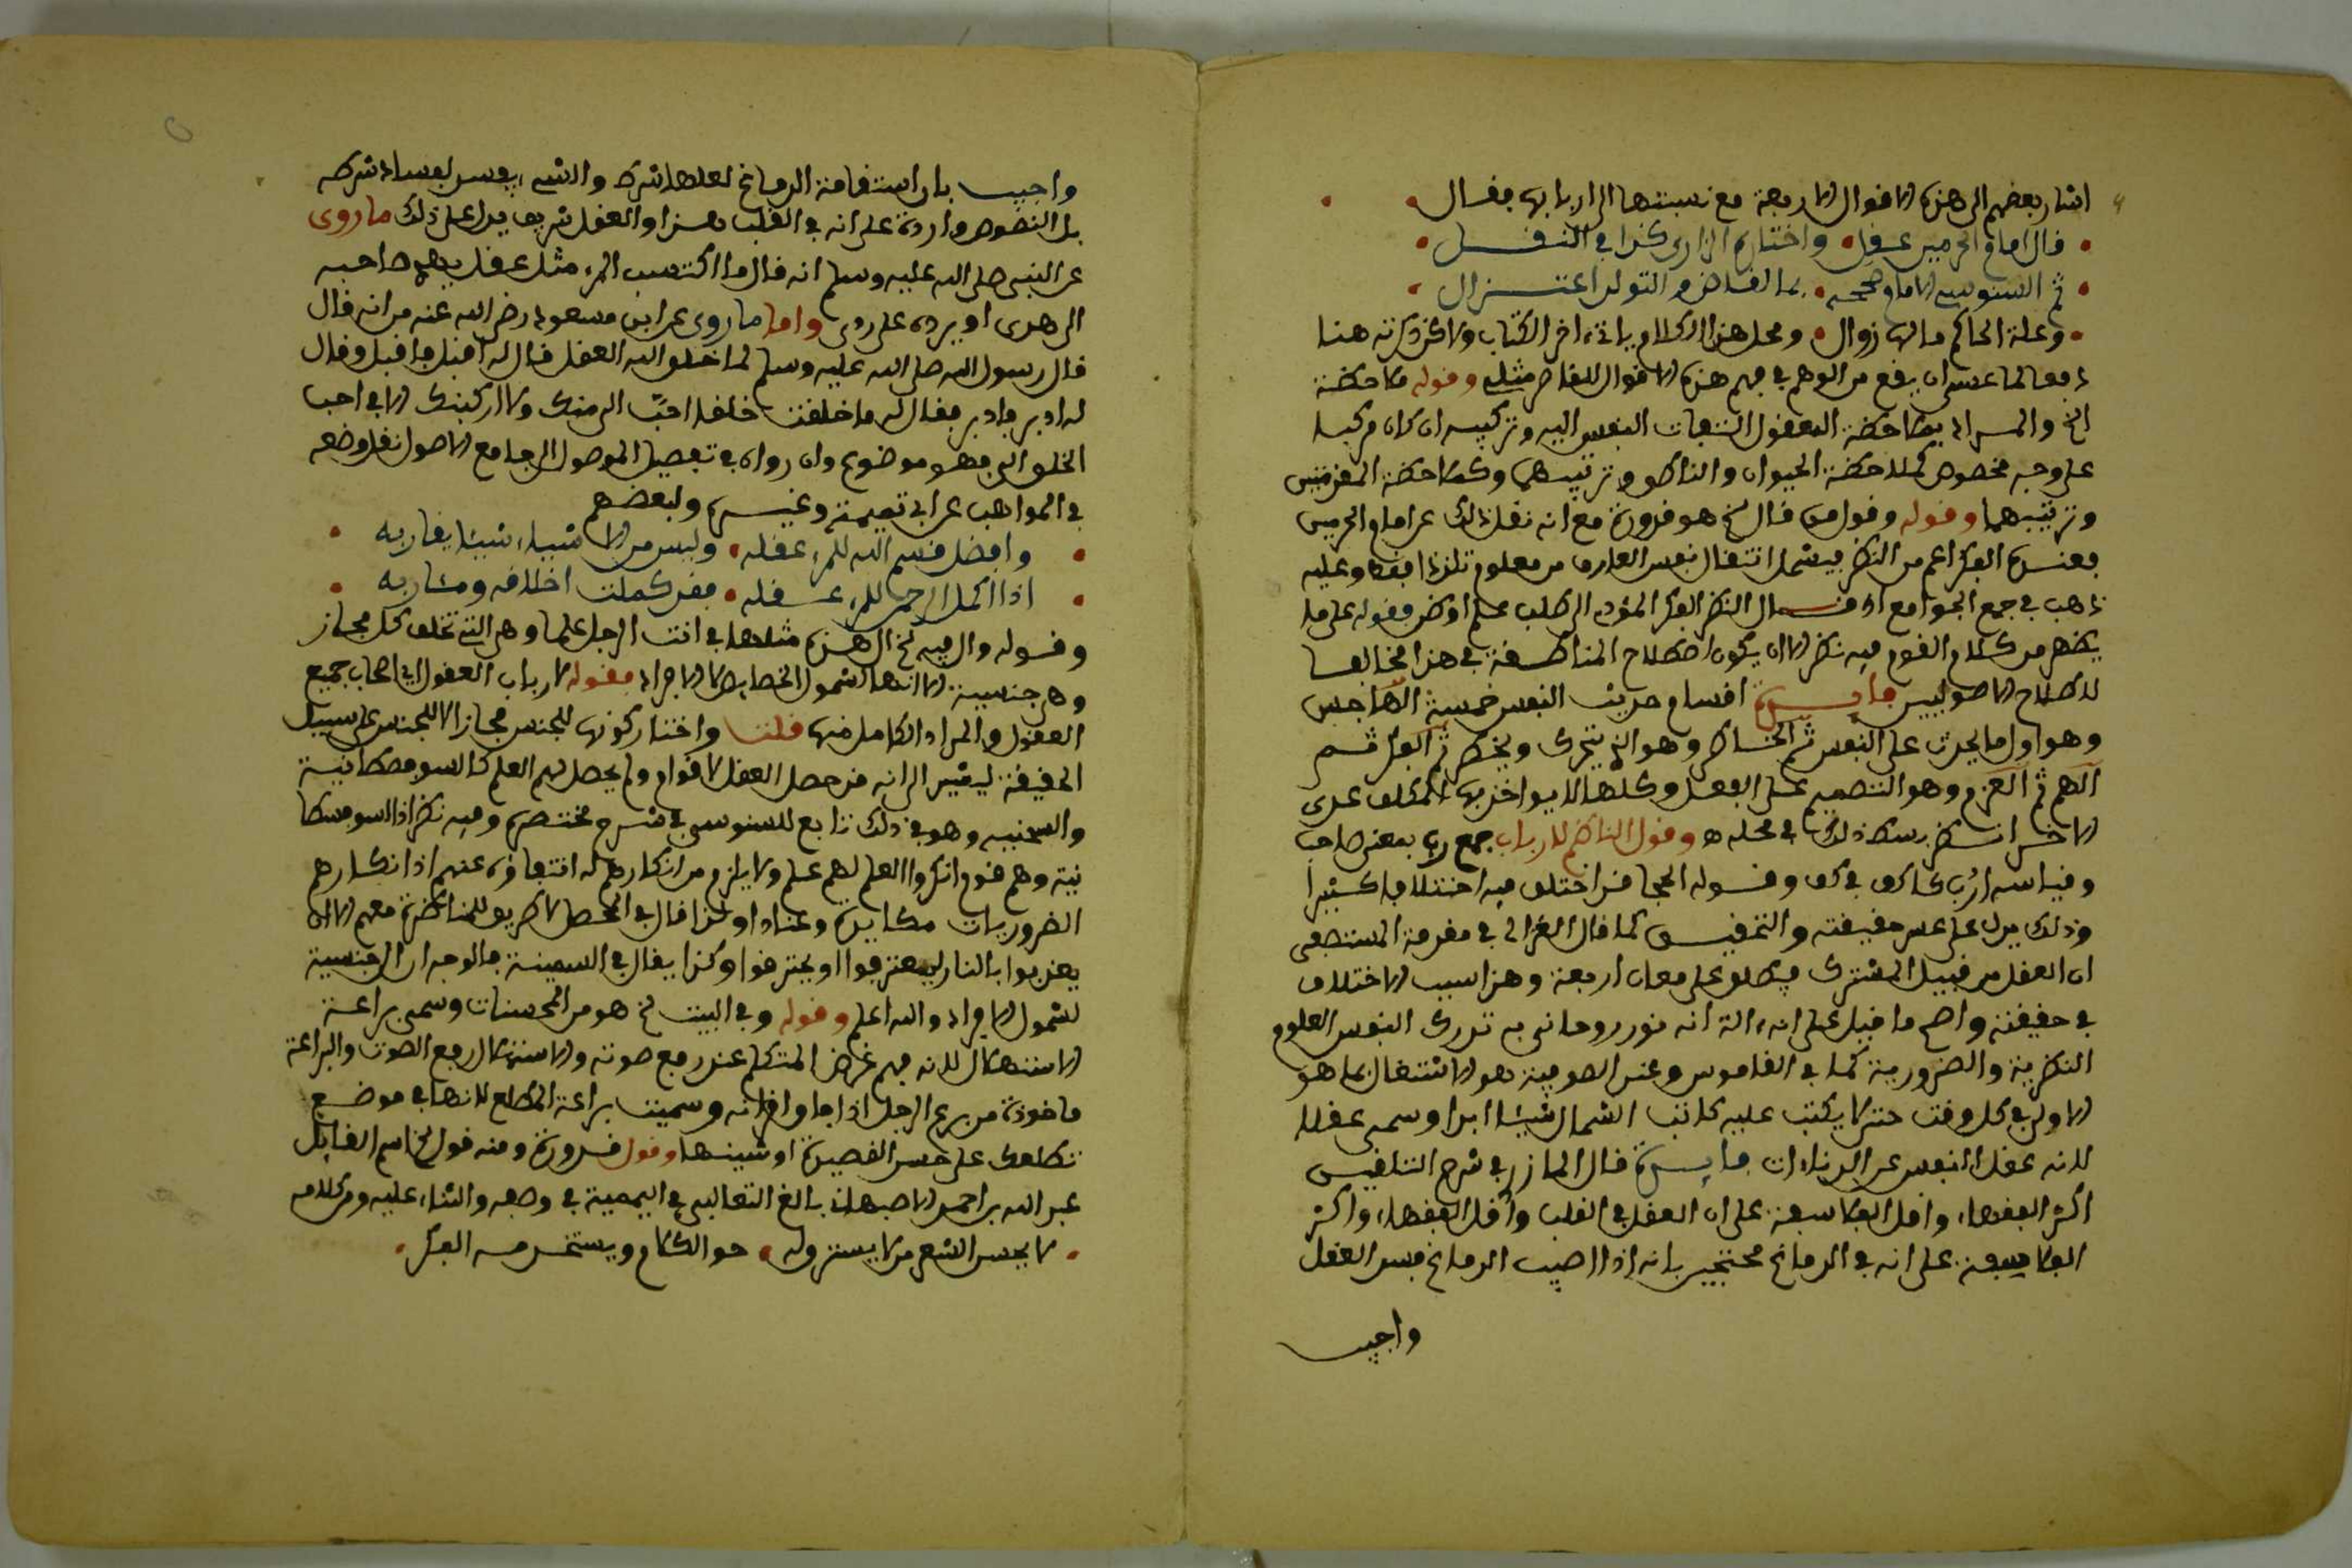 اشار بعضهم الى هذه الاقوال الاربعة مع نسبتها الى اربابها فقال
قال امام الحرمين عقل واختاره الرازي كذا في النقل
ثم السنوسي الامام صححه للقاض والتولد اعتزال
وعلة الحاكم مالها زوال ومحل هذا الكلام ياتي ءاخر الكتاب ولاكن ذكرته هنا
دفعا لما عسى ان يقع من الوهم في فهم هذه الاقوال للقاصر مثلي وقوله ملاحظة
الخ والمراد بملاحظة المعقول التفات النفس اليه وتركيبه ان كان مركبا
على وجه مخصوص كملاحظة الحيوان والناطق وترتيبهما وكملاحظة المقدمتين
وترتيبهما وقوله وقول من قال الخ هو قدورة مع انه نقل ذلك عن امام الحرمين
فعنده الفكر اعم من النظر فيشمل انتقال نفس العارف من معلوم تلذذا فقط وعليه
ذهب في جمع الجوامع اذ قال النظر الفكر المؤدي الى طلب علم او ظن فقوله على ما
يظهر من كلام القوم فيه نظر الا ان يكون اصطلاح المناطقة في هذا مخالفا
لاصطلاح الاصوليين فايدة اقسام حديث النفس خمسة الهاجس
وهو اول ما يحدث على النفس ثم الخاطر وهو الذي يتحرك ويخطر ثم الفكر ثم
الهم ثم العزم وهو التصميم على الفعل وكلها لا يواخذ بها المكلف عدى
الاخير انظر بسط ذلك في محله ه وقول الناظم لارباب جمع رب بمعنى صاحب
وقياسه ارُبّ كاكف في كف وقوله الحجا قد اختلف فيه اختلافا كثيرا
وذلك يدل على عسر حقيقته والتحقيق كما قال الغزالي في مقدمة المستصفى
ان العقل من قبيل المشترك فيطلق على معان اربعة وهذا سبب الاختلاف
في حقيقته واصح ما قيل على انه ءالة انه نور روحاني به تدرك النفس العلوم
النظرية والضرورية كما في القاموس وعند الصوفية هو الاشتغال بما هو
الاولى في كل وقت حتى لا يكتب عليه كاتب الشمال شيئا ابدا وسمي عقلا
لانه عقل النفس عن الدناءات فايدة قال المازري في شرح التلقين
اكثر الفقهاء واقل الفلاسفة على ان العقل في القلب واقل الفقهاء واكثر
الفلاسفة على انه في الدماغ محتجين بانه اذا اصيب الدماغ فسد العقل
واجيب
واجيب بان استقامة الدماغ لعلها شرط والشيء يفسد لفساد شرطه
بل النصوص واردة على انه في القلب هذا والعقل شريف يدل على ذلك ما روى
عن النبي صلى الله عليه وسلم انه قال ما اكتسب المرء مثل عقل يهدي صاحبه
الى هدى او يرده على ردى واما ما روى عن ابن مسعود رضي الله عنه من انه قال
قال رسول الله صلى الله عليه وسلم لما خلق الله العقل قال له اقبل فاقبل وقال
له ادبر فادبر فقال له ما خلقت خلقا احب الى منك ولا اركبنك الا في احب
الخلق الي فهو موضوع وان رواه في تفصيل الموصول الى جامع الاصول نقل وضعه
في المواهب عن ابن تيمية وغيره ولبعضهم
وافضل قسم الله للمرء عقله وليس من الاشياء شيئا يقاربه
اذا اكمل الرحمن للمرء عقله فقد كملت اخلاقه ومئاربه
وقوله وال فيه الخ ال هذه مثلها في انت الرجل علما وهي التي تخلف كل مجاز
وهي جنسية الا انها لشمول الخصايص لا الافراد فقوله لارباب العقول اي اصحاب جميع
العقول والمراد الكامل فيها قلت واختار كونها للجنس مجازا لا للجنس على سبيل
الحقيقة ليشير الى انه قد حصل العقل لاقوام ولم يحصل لهم العلم كالسوفسطائية
والسمنية وهو في ذلك تابع للسنوسي في شرح مختصره وفيه نظر اذ السوفسطا
ئية وهم قوم انكروا العلم لهم علم ولا يلزم من انكارهم له انتفاؤه عنهم اذ انكارهم
الضروريات مكابرة وعنادا ولذا قال في المحصل لا طريق للمناظرة معهم الا ان
يعذبوا بالنار ليعترفوا او يحترقوا وكذا يقال في السمنية فالوجه ان الجنسية
لشمول الافراد والله اعلم وقوله وفي البيت الخ هو من المحسنات وسمي براعة
الاستهلال لانه فهم غرض المتكلم عند رفع صوته والاستهلال رفع الصوت والبراعة
ماخوذة من برع الرجل اذا فاق اقرانه وسميت براعة المطلع لانها في موضع
تطلعك على حسن القصيدة او شينها وقول قدورة ومنه قول الخ اسم القايل
عبد الله بن احمد الاصبهاني بالغ الثعالبي في اليتيمة في وصفه والثناء عليه ومن كلامه
لا يحسن الشعر من لا يسترق له حر الكلام ويستخدم له الفكر